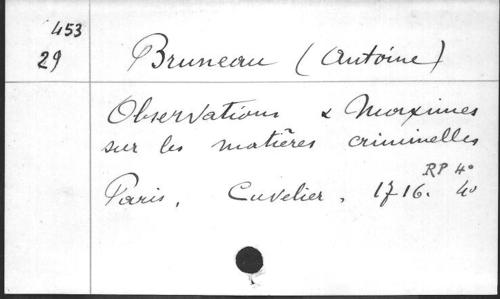 453
29
Bruneau (Antoine)
Observations & Maximes
sur les matières criminelles
RP 4°
Paris, Cuvelier, 1716. 4°